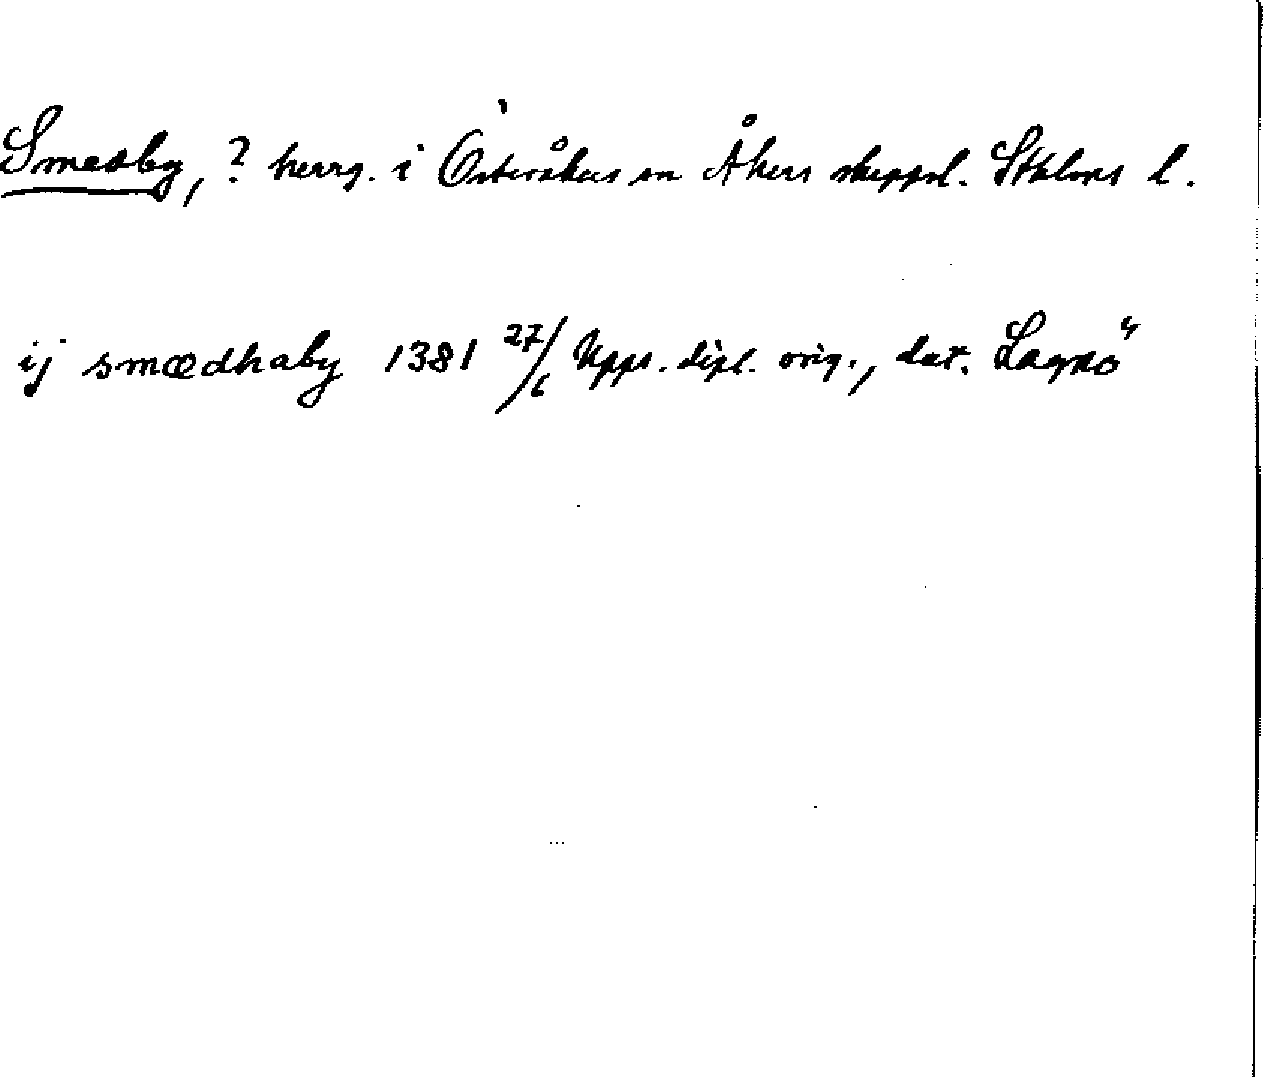 Smedby, ? herrg. i Österåkers sn Åkers skeppsl. Sthlms l.
ij smædhaby 1381 27/6 Upps. dipl. orig., dat. Lagnö